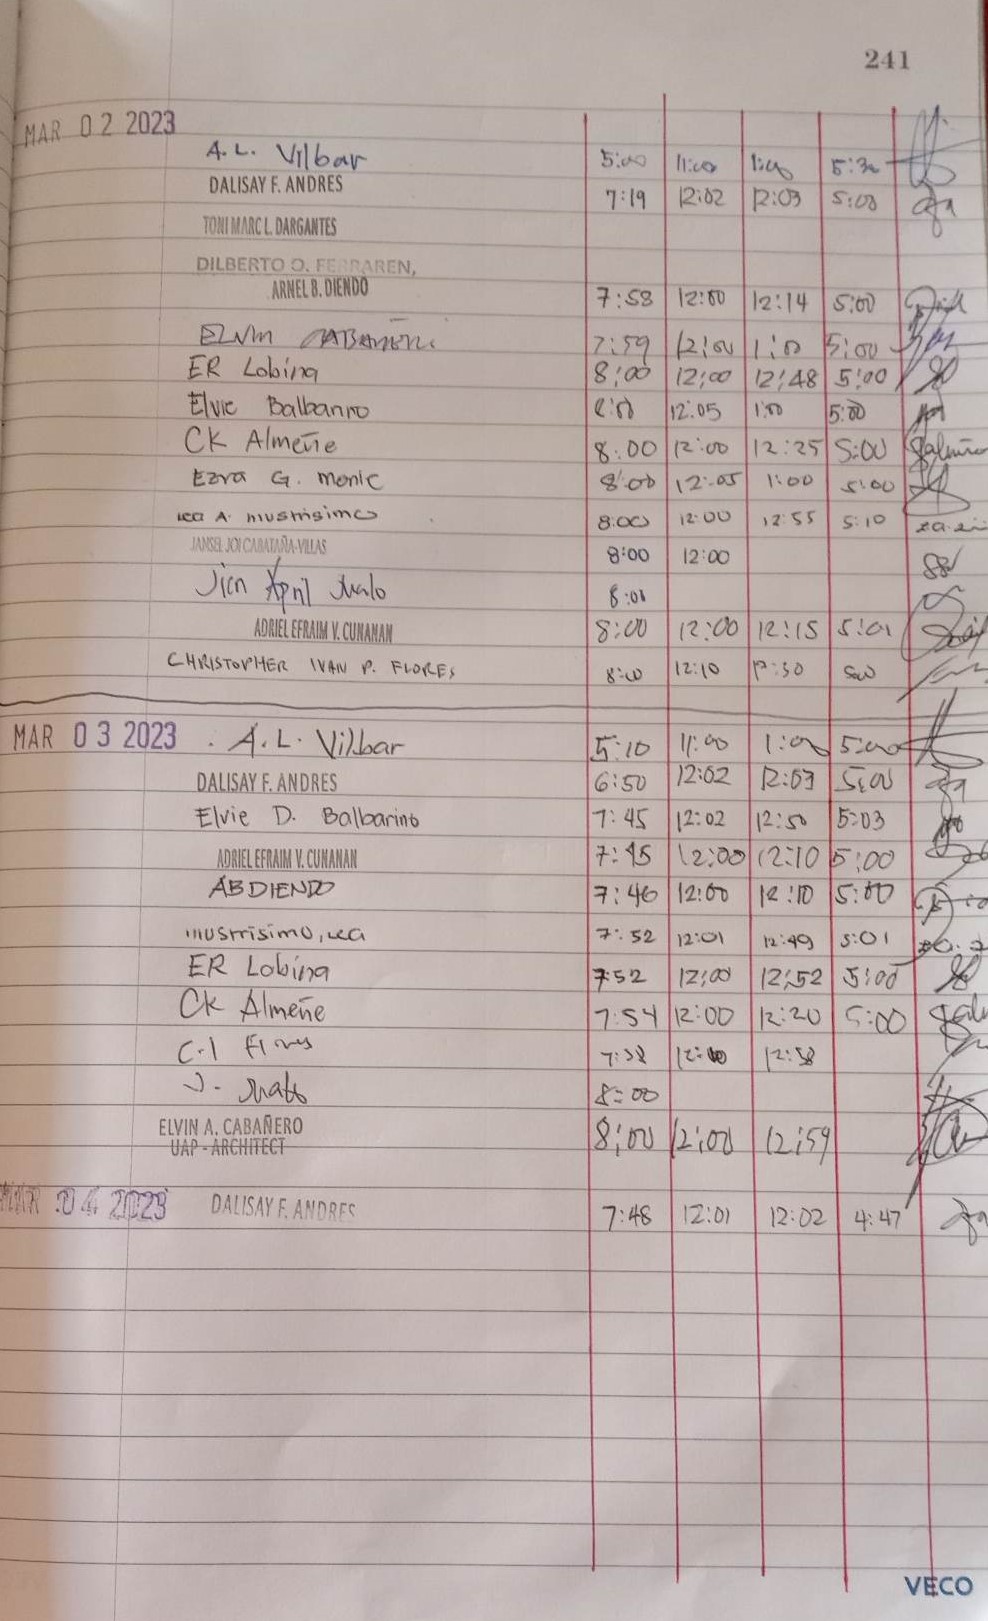 241
MAR 02 2023
A.L. Vilbar 5:00 11:00 1:00 5:30
DALISAY F. ANDRES 7:19 12:02 12:03 5:00
TONI MARC L. DARGANTES
DILBERTO O. FERRAREN,
ARNEL B. DIENDO 7:58 12:00 12:14 5:00
ELVIN 7:59 12:00 1:00 5:00
ER Lobina 8:00 12:00 12:48 5:00
Elvie Balbarino 8:00 12:05 1:00 5:00
CK Almeñe 8:00 12:00 12:25 5:00
Ezra G. Monic 8:00 12:05 1:00 5:00
Lea A. Mustrisimo 8:00 12:00 12:55 5:10
JANSEL JOI CABATAÑA-VILLAS 8:00 12:00
April Malo 8:01
ADRIEL EFRAIM V. CUNANAN 8:00 12:00 12:15 5:01
CHRISTOPHER IVAN P. FLORES 8:00 12:10 12:30 5:00
MAR 03 2023 A.L. Vilbar 5:10 11:00 1:00 5:00
DALISAY F. ANDRES 6:50 12:02 12:03 5:00
Elvie D. Balbarino 7:45 12:02 12:50 5:03
ADRIEL EFRAIM V. CUNANAN 7:45 12:00 12:10 5:00
ABDIENDO 7:46 12:00 12:10 5:00
Mustrisimo, Lea 7:52 12:01 12:49 5:01
ER Lobina 7:52 12:00 12:52 5:00
CK Almeñe 7:54 12:00 12:20 5:00
C.I Flores 12:58
J. Malo 8:00
ELVIN A. CABAÑERO 8:00 12:00 12:59
UAP - ARCHITECT
MAR 04 2023 DALISAY F. ANDRES 7:48 12:01 12:02 4:47
VECO